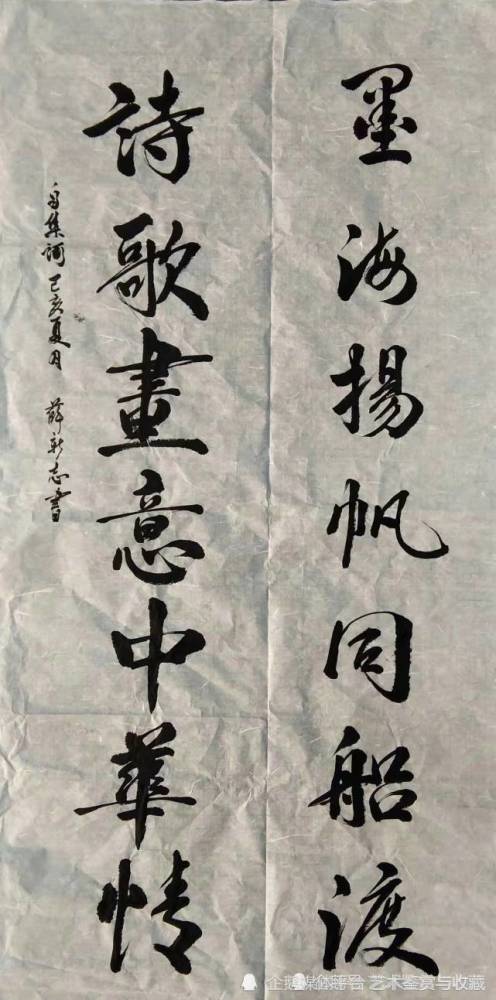 墨海揚帆同船渡
詩歌畫意中華情
自集詞 己亥夏月 薛新志書
艺术鉴赏与收藏